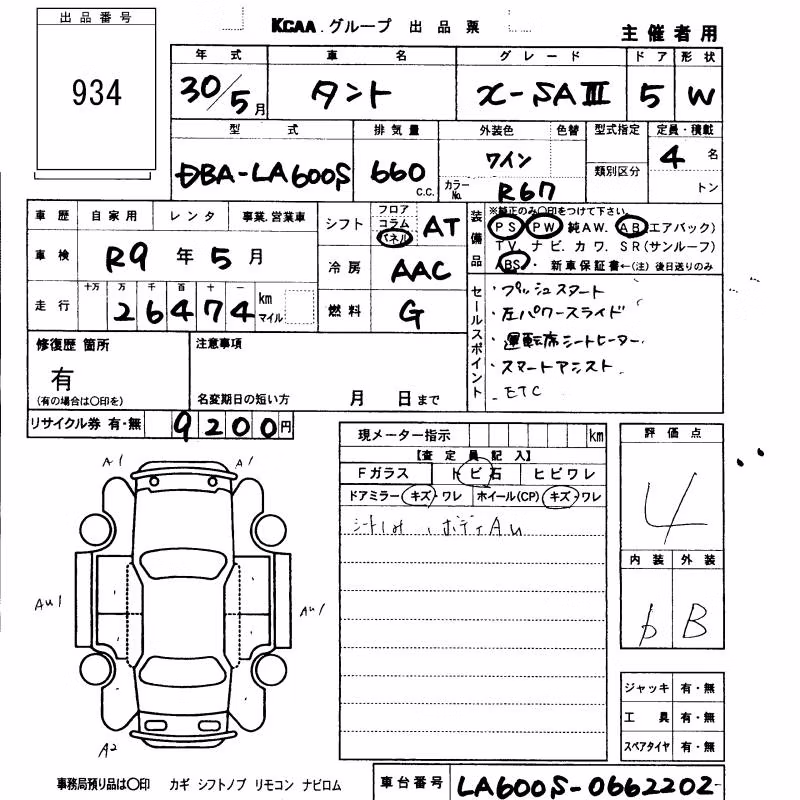 出品番号
934
KCAA.グループ 出品票
主催者用
年式 車名 グレード ドア 形状
30/5月 タント X-SAⅢ 5 W
型式 排気量 外装色 色替 型式指定 定員・積載
DBA-LA600S 660 c.c. ワイン 4名
類別区分
カラーNo. R67 トン
車歴 自家用 レンタ 事業.営業車
車検 R9年5月
走行 十万 万 千 百 十 一
26474 km マイル
シフト フロア コラム パネル AT
冷房 AAC
燃料 G
装備品
※純正のみ〇印をつけて下さい。
PS PW 純AW. AB(エアバック)
TV. ナビ. カワ. SR(サンルーフ)
ABS・ 新車保証書←(注)後日送りのみ
セールスポイント
・プッシュスタート
・左パワースライド
・運転席シートヒーター.
・スマートアシスト.
・ETC
修復歴 箇所
有
(有の場合は〇印を)
注意事項
名変期日の短い方 月 日まで
リサイクル券 有・無 9200円
現メーター指示 km
【査定員記入】
Fガラス トビ石 ヒビワレ
ドアミラー キズ・ワレ ホイール(CP) キズ・ワレ
ボディAu
評価点
4
内装 外装
B
A1 A1
Au1 Au1
A2
ジャッキ 有・無
工具 有・無
スペアタイヤ 有・無
事務局預り品は〇印 カギ シフトノブ リモコン ナビロム
車台番号 LA600S-0662202